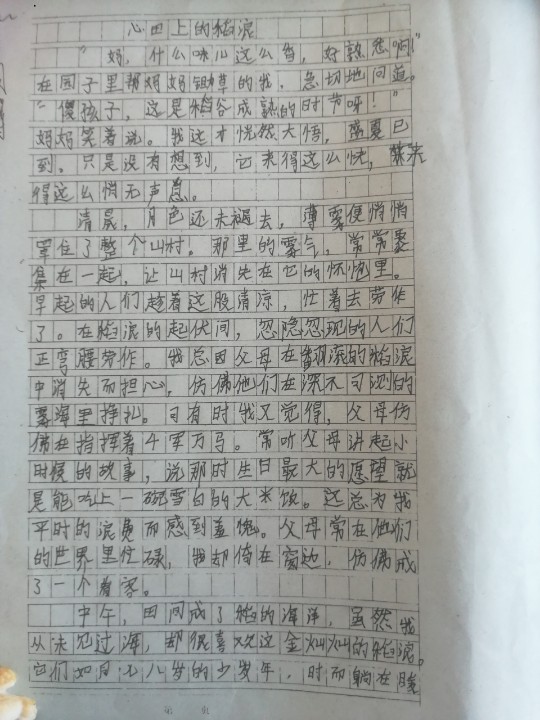 心田上的稻浪
“妈，什么味儿这么香，好熟悉啊！”
在园子里帮妈妈锄草的我，急切地问道。
“傻孩子，这是稻谷成熟的时节呀！”
妈妈笑着说。我这才恍然大悟，盛夏已
到。只是没有想到，它来得这么快，来
得这么悄无声息。
清晨，月色还未褪去，薄雾便悄悄
罩住了整个山村。那里的雾气，常常聚
集在一起，让山村消失在它的怀抱里。
早起的人们趁着这股清凉，忙着去劳作
了。在稻浪的起伏间，忽隐忽现的人们
正弯腰劳作。我总因父母在翻滚的稻浪
中消失而担心，仿佛他们在深不可测的
雾海里挣扎。可有时我又觉得，父母仿
佛在指挥着千军万马。常听父母讲起小
时候的故事，说那时生日最大的愿望就
是能吃上一碗雪白的大米饭。这总为我
平时的浪费而感到羞愧。父母常在他们
的世界里忙碌，我却倚在窗边，仿佛成
了一个看客。
中午，田间成了稻的海洋，虽然我
从未见过海，却很喜欢这金灿灿的稻浪。
它们如同七八岁的少年，时而躺在
第 页